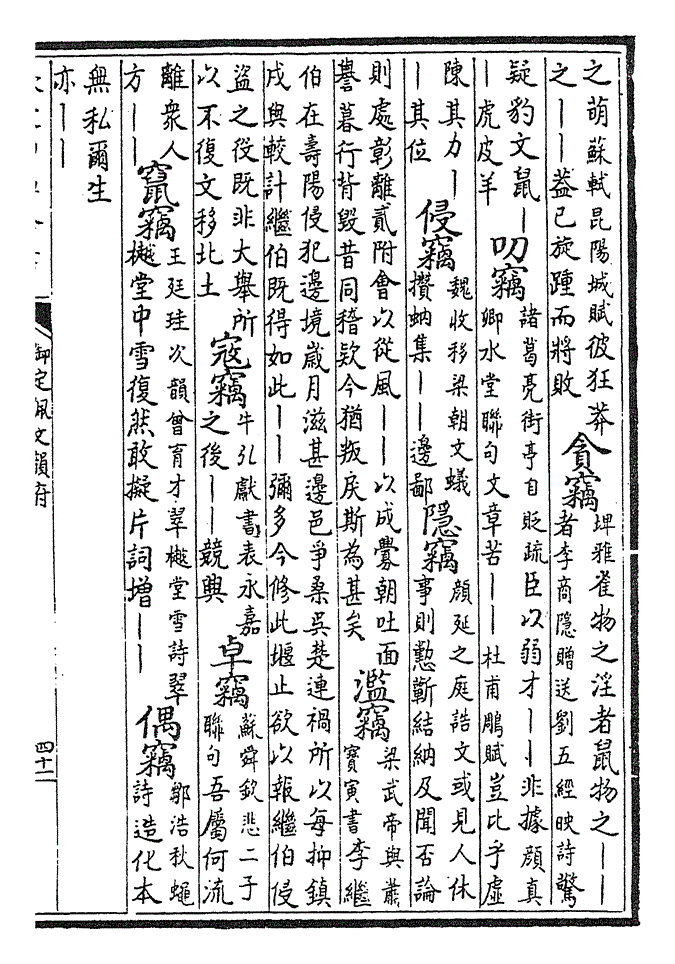 之萌蘇軾昆陽城賦彼狂莽
之||葢已旋踵而將敗
貪竊
埤雅雀物之淫者鼠物之||
者李商隱贈送劉五經映詩驚
疑豹文鼠|
|虎皮羊
叨竊
諸葛亮街亭自貶疏臣以弱才||非據顔真
卿水堂聯句文章苦||杜甫鵰賦豈比乎虚
陳其力|
|其位
侵竊
魏收移梁朝文蟻
攢蚋集||邊鄙
隱竊
顔延之庭誥文或見人休
事則懃蘄結納及聞否論
則處彰離貳附會以從風||以成釁朝吐面
譽暮行背毁昔同稽款今猶叛戾斯為甚矣
濫竊
梁武帝與蕭
寶寅書李繼
伯在壽陽侵犯邊境嵗月滋甚邊邑爭桑吳楚連禍所以每抑鎮
戍與較計繼伯既得如此||彌多今修此堰止欲以報繼伯侵
盜之役既非大舉所
以不復文移北土
寇竊
牛弘獻書表永嘉
之後||競興
卓竊
蘇舜欽悲二子
聯句吾屬何流
離衆人
方||
竄竊
王廷珪次韻曾育才翠樾堂雪詩翠
樾堂中雪復然敢擬片詞增||
偶竊
鄒浩秋蠅
詩造化本
無私爾生
亦||
御定佩文韻府
四十二